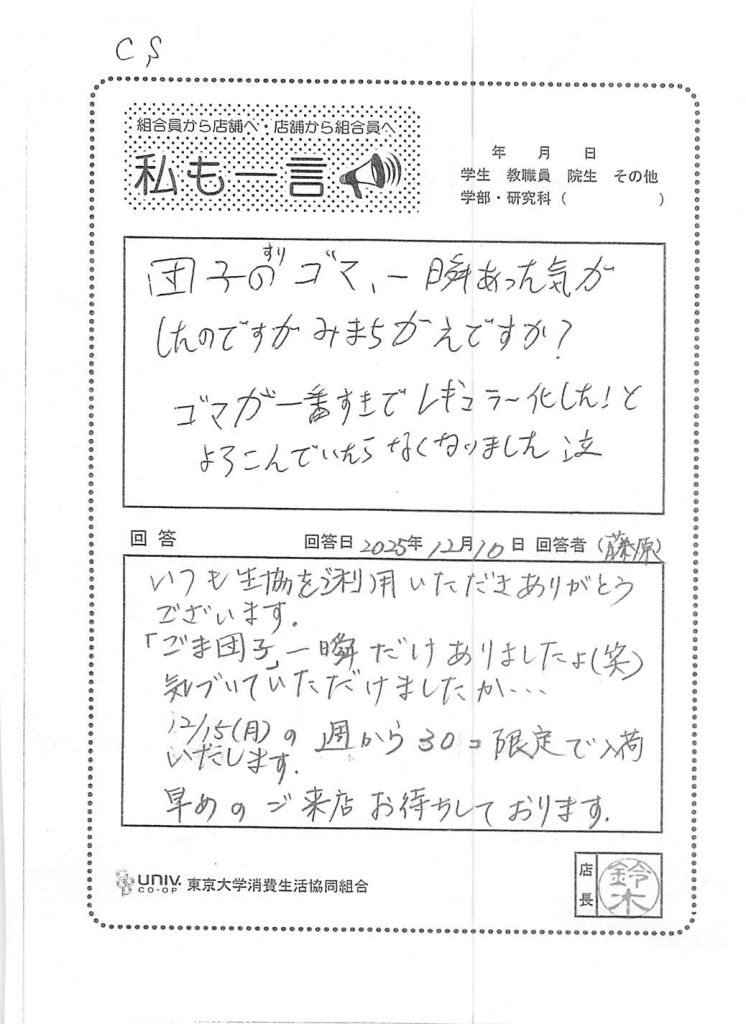 CS
組合員から店舗へ・店舗から組合員へ
私も一言
年 月 日
学生 教職員 院生 その他
学部・研究科( )
すり
団子のゴマ、一瞬あった気が
したのですがみまちがえですか?
ゴマが一番すきでレギュラー化した!と
よろこんでいたらなくなりました 泣
回答 回答日 2025年 12月 10日 回答者 (藤原)
いつも生協をご利用いただきありがとう
ございます。
「ごま団子」一瞬だけありましたよ(笑)
気づいていただけましたか…
12/15(月)の週から30コ限定で入荷
いたします。
早めのご来店お待ちしております。
UNIV. CO-OP 東京大学消費生活協同組合
店長 鈴木